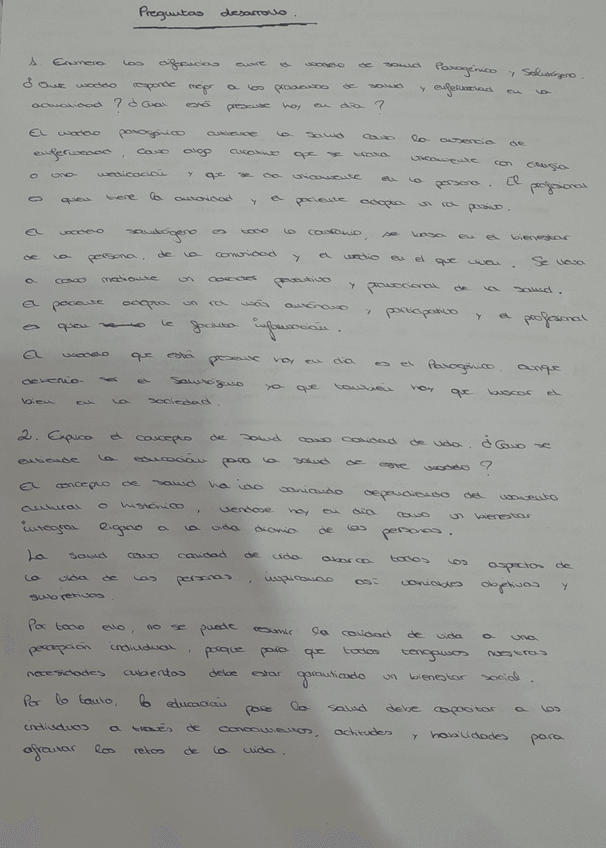 Preguntas desarrollo.
1. Enumera las diferencias entre el modelo de salud Patogénico y Salutógeno.
¿Que modelo responde mejor a los problemas de salud y enfermedad en la
actualidad? ¿Cual está presente hoy en día?
El modelo patogénico entiende la salud como la ausencia de
enfermedad, como algo curativo que se trata únicamente con cirugía
o una medicación y que se da únicamente en la persona. El profesional
es quien tiene la autoridad y el paciente adopta un rol pasivo.
El modelo salutógeno es todo lo contrario, se basa en el bienestar
de la persona, de la comunidad y el medio en el que viven. Se lleva
a cabo mediante un carácter preventivo y promocional de la salud.
El paciente adopta un rol más autónomo y participativo y el profesional
es quien le facilita información.
El modelo que está presente hoy en día es el Patogénico, aunque
debería ser el Salutógeno ya que también hay que buscar el
bien en la sociedad.
2. Explica el concepto de salud como calidad de vida. ¿Cómo se
entiende la educación para la salud de este modelo?
El concepto de salud ha ido variando dependiendo del momento
cultural o histórico, viéndose hoy en día como un bienestar
integral ligado a la vida diaria de las personas.
La salud como calidad de vida abarca todos los aspectos de
la vida de las personas, implicando así variables objetivas y
subjetivas.
Por todo ello, no se puede resumir la calidad de vida a una
percepción individual, porque para que todos tengamos nuestras
necesidades cubiertas debe estar garantizado un bienestar social.
Por lo tanto, la educación para la salud debe capacitar a los
individuos a través de conocimientos, actitudes y habilidades para
afrontar los retos de la vida.